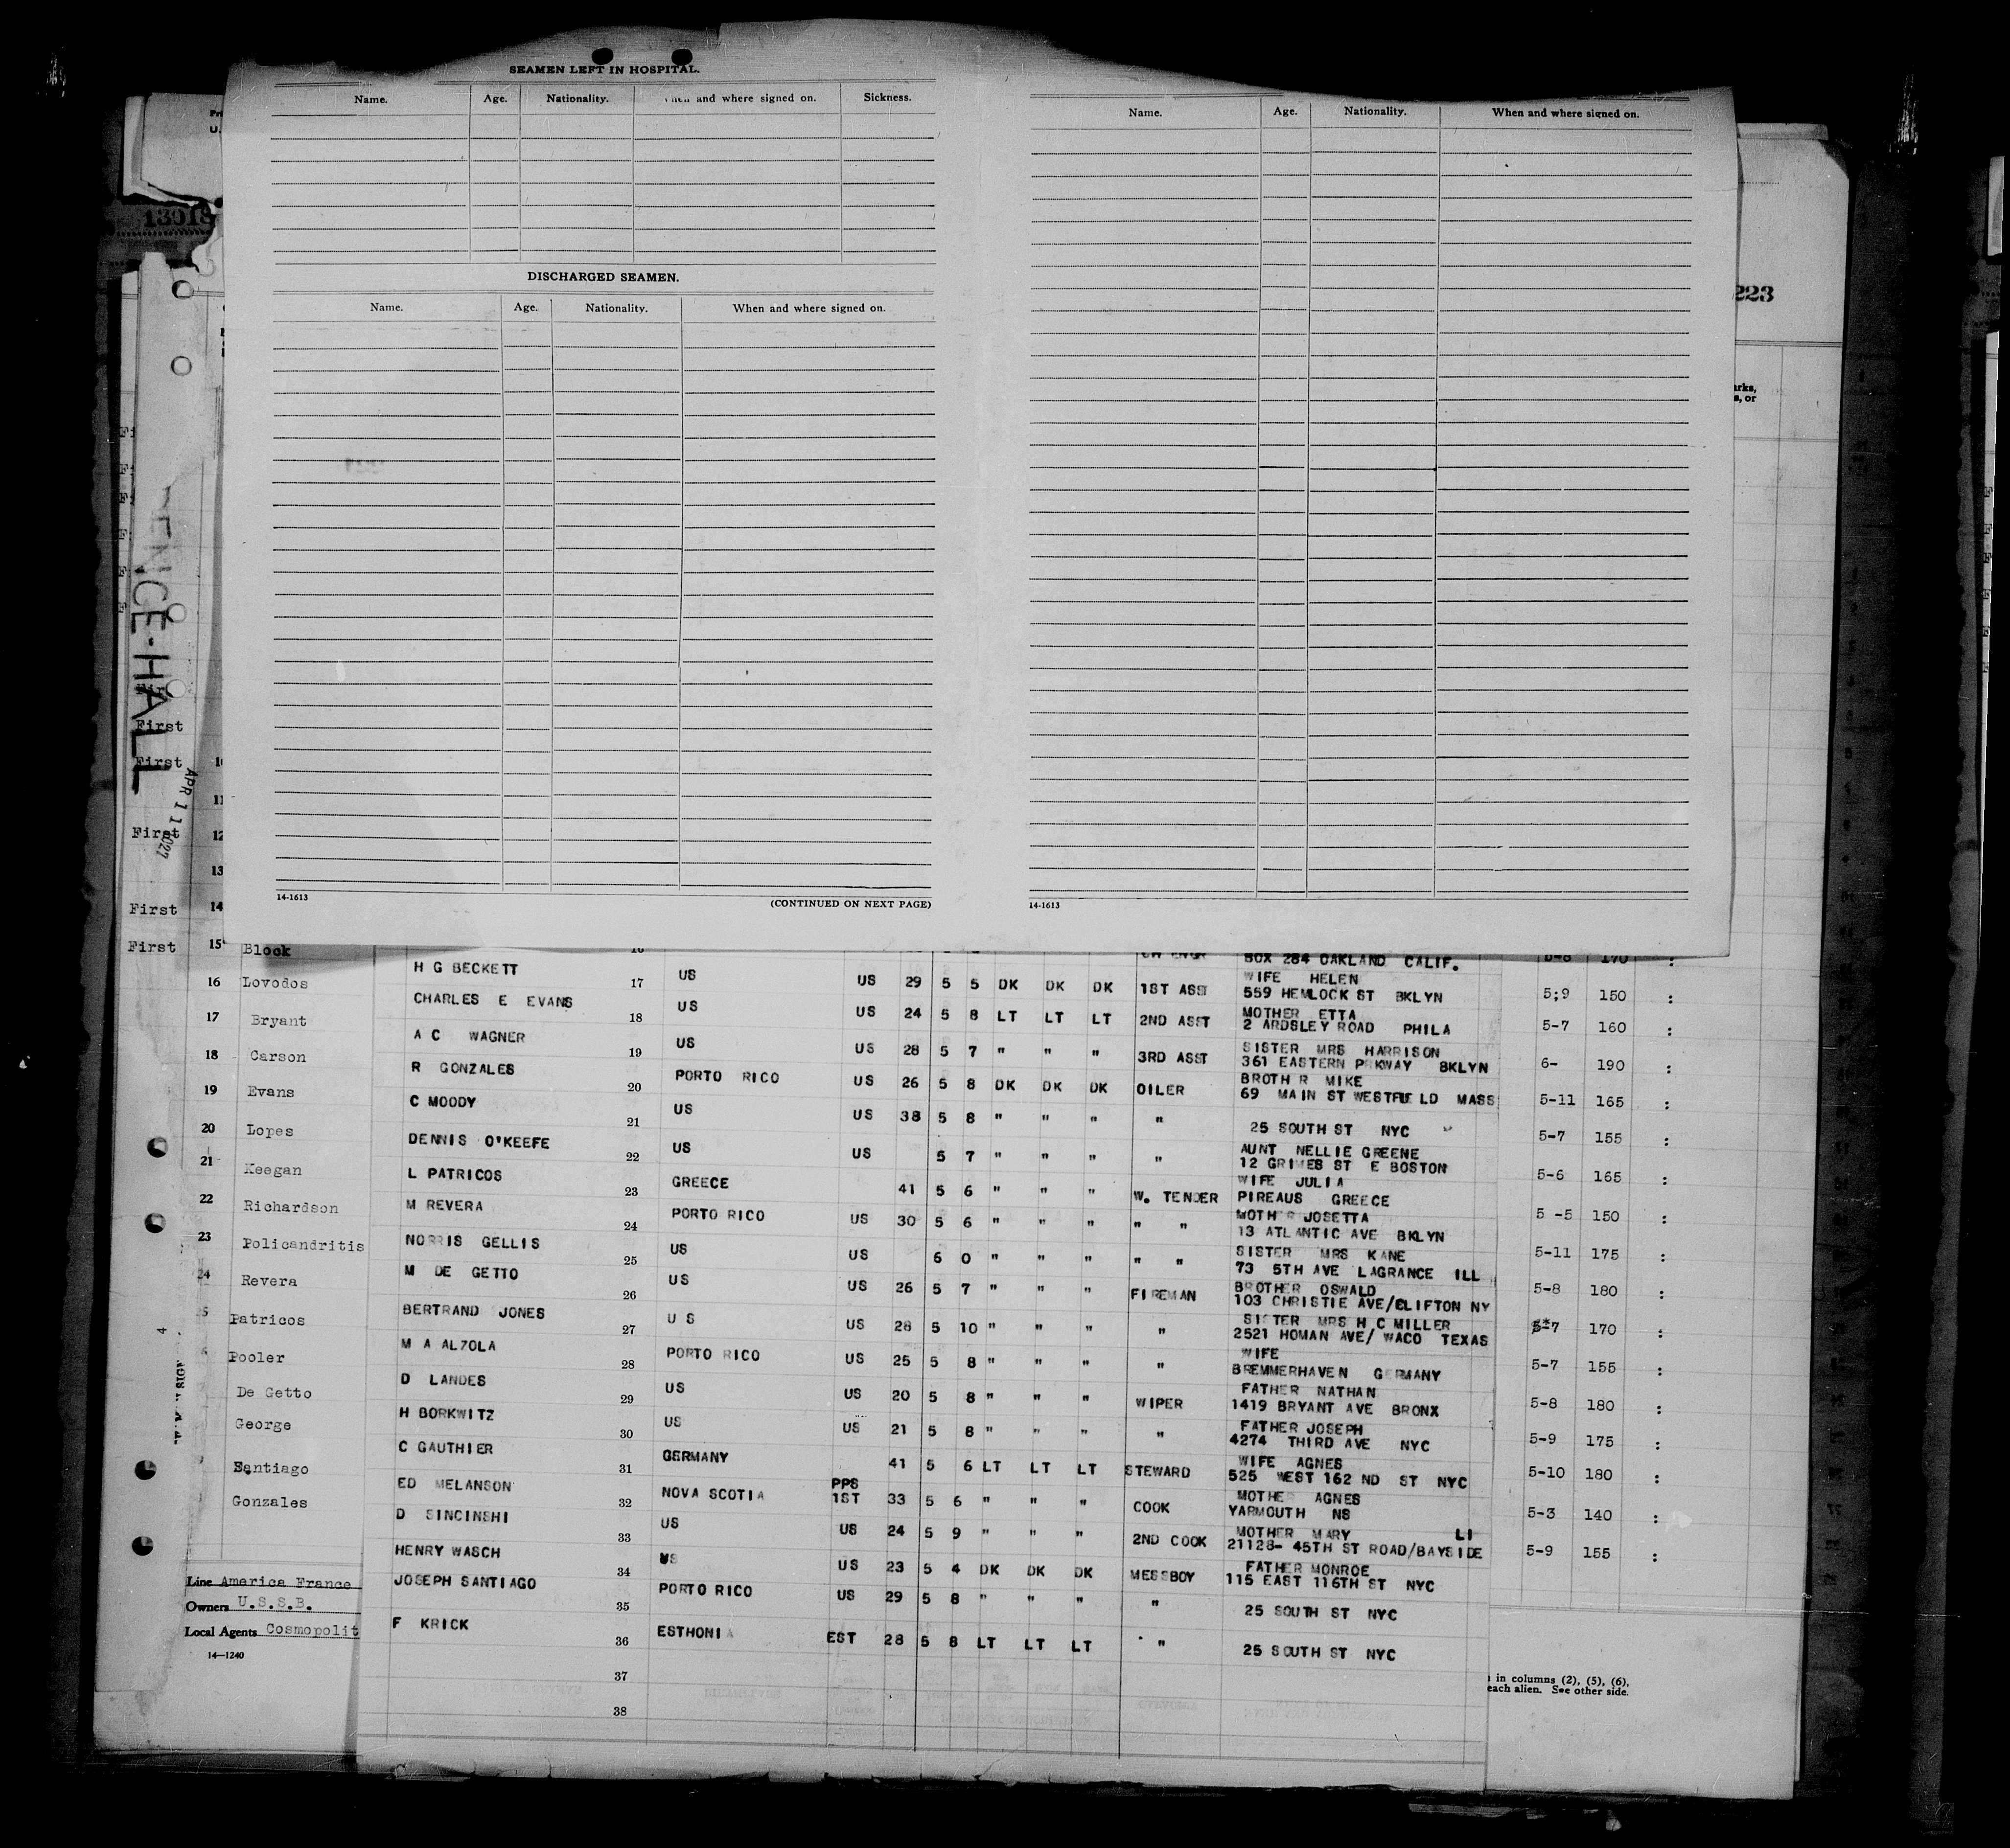 SEAMEN LEFT IN HOSPITAL.
Name. Age. Nationality. and where signed on. Sickness.
Name. Age. Nationality. When and where signed on.
13018
DISCHARGED SEAMEN.
Name. Age. Nationality. When and where signed on.
223
arks,
s, or
ENCE-HALL
APR 11 1927
First
First 10
11
First 12
13
First 14
14-1613 (CONTINUED ON NEXT PAGE) 14-1613
First 15 Block
BOX 284 OAKLAND CALIF. 5-8 170 :
16 Lovodos H G BECKETT 17 US US 29 5 5 DK DK DK 1ST ASST WIFE HELEN
559 HEMLOCK ST BKLYN 5;9 150 :
17 Bryant CHARLES E EVANS 18 US US 24 5 8 LT LT LT 2ND ASST MOTHER ETTA
2 ARDSLEY ROAD PHILA 5-7 160 :
18 Carson A C WAGNER 19 US US 28 5 7 " " " 3RD ASST SISTER MRS HARRISON
361 EASTERN PRKWAY BKLYN 6- 190 :
19 Evans R GONZALES 20 PORTO RICO US 26 5 8 DK DK DK OILER BROTH R MIKE
69 MAIN ST WESTFIELD MASS 5-11 165 :
20 Lopes C MOODY 21 US US 38 5 8 " " " "
25 SOUTH ST NYC 5-7 155 :
21 Keegan DENNIS O'KEEFE 22 US US 5 7 " " " " AUNT NELLIE GREENE
12 GRIMES ST E BOSTON 5-6 165 :
22 Richardson L PATRICOS 23 GREECE 41 5 6 " " " W. TENDER WIFE JULIA
PIREAUS GREECE 5 -5 150 :
23 Policandritis M REVERA 24 PORTO RICO US 30 5 6 " " " " " MOTHER JOSETTA
13 ATLANTIC AVE BKLYN 5-11 175 :
24 Revera NORRIS GELLIS 25 US US 6 0 " " " " " SISTER MRS KANE
73 5TH AVE LAGRANCE ILL 5-8 180 :
5 Patricos M DE GETTO 26 US US 26 5 7 " " " FIREMAN BROTHER OSWALD
103 CHRISTIE AVE/CLIFTON NY 5-7 170 :
6 Pooler BERTRAND JONES 27 U S US 28 5 10 " " " " SISTER MRS H C MILLER
2521 HOMAN AVE/ WACO TEXAS 5-7 155 :
De Getto M A ALZOLA 28 PORTO RICO US 25 5 8 " " " " WIFE
BREMMERHAVEN GERMANY 5-8 180 :
George D LANDES 29 US US 20 5 8 " " " WIPER FATHER NATHAN
1419 BRYANT AVE BRONX 5-9 175 :
H BORKWITZ 30 US US 21 5 8 " " " " FATHER JOSEPH
4274 THIRD AVE NYC
Santiago C GAUTHIER 31 GERMANY 41 5 6 LT LT LT STEWARD WIFE AGNES
525 WEST 162 ND ST NYC 5-10 180 :
Gonzales ED MELANSON 32 NOVA SCOTIA PPS 1ST 33 5 6 " " " COOK MOTHE AGNES
YARMOUTH NS 5-3 140 :
D SINCINSHI 33 US US 24 5 9 " " " 2ND COOK MOTHER MARY LI
21128- 45TH ST ROAD/BAYSIDE 5-9 155 :
HENRY WASCH 34 US US 23 5 4 DK DK DK MESSBOY FATHER MONROE
115 EAST 116TH ST NYC
JOSEPH SANTIAGO 35 PORTO RICO US 29 5 8 " " " "
25 SOUTH ST NYC
F KRICK 36 ESTHONIA EST 28 5 8 LT LT LT "
25 SOUTH ST NYC
37
38
Line America France
Owners U.S.S.B.
Local Agents Cosmopolit
14—1240
in columns (2), (5), (6),
each alien. See other side.